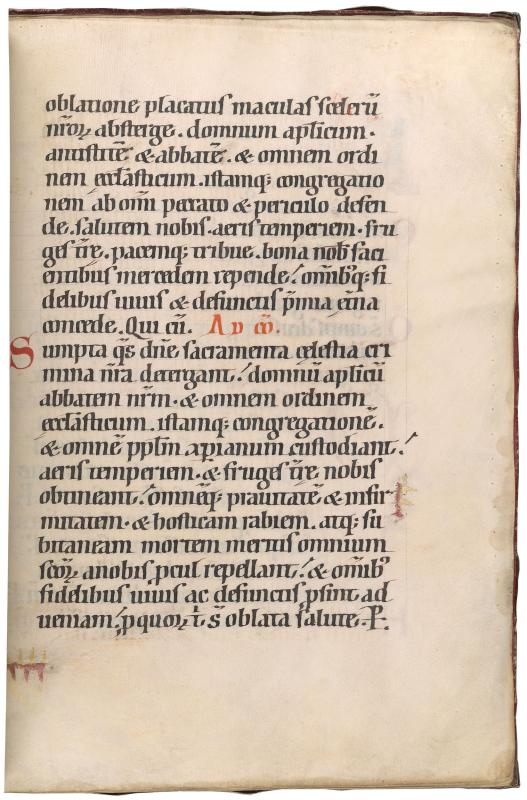 oblatione placatus maculas scelerū
nr̄oꝝ absterge. domnum apl̄icum.
antistitē & abbatē. & omnem ordi
nem eccl̄asticum. istamq; congregatio
nem ab om̄i peccato & periculo defen
de. salutem nobis. aeris temperiem. fru
ges tr̄e. pacemq; tribue. bona nob̄ faci
entibus mercedem repende. om̄ib'q; fi
delibus uiuis & defunctis p̄mia et̄na
concede. Qui cū. A D CŌ.
Sumpta q̄s dn̄e sacramenta cęlestia cri
mina nr̄a detergant. domnū apl̄icū
abbatem nr̄m. & omnem ordinem
eccl̄asticum. istamq; congregationē.
& omnē ppl̄m xpianum custodiant.
aeris temperiem. & fruges tr̄e nobis
obtineant. omnēq; prauitatē & infir
mitatem. & hosticam rabiem. atq; su
bitaneam mortem meritis omnium
sc̄oꝝ a nobis ꝓcul repellant. & om̄ib'
fidelibus uiuis ac defunctis ꝓsint ad
ueniam. ꝑ quoꝝ t̄ s̄ oblata salute. P.